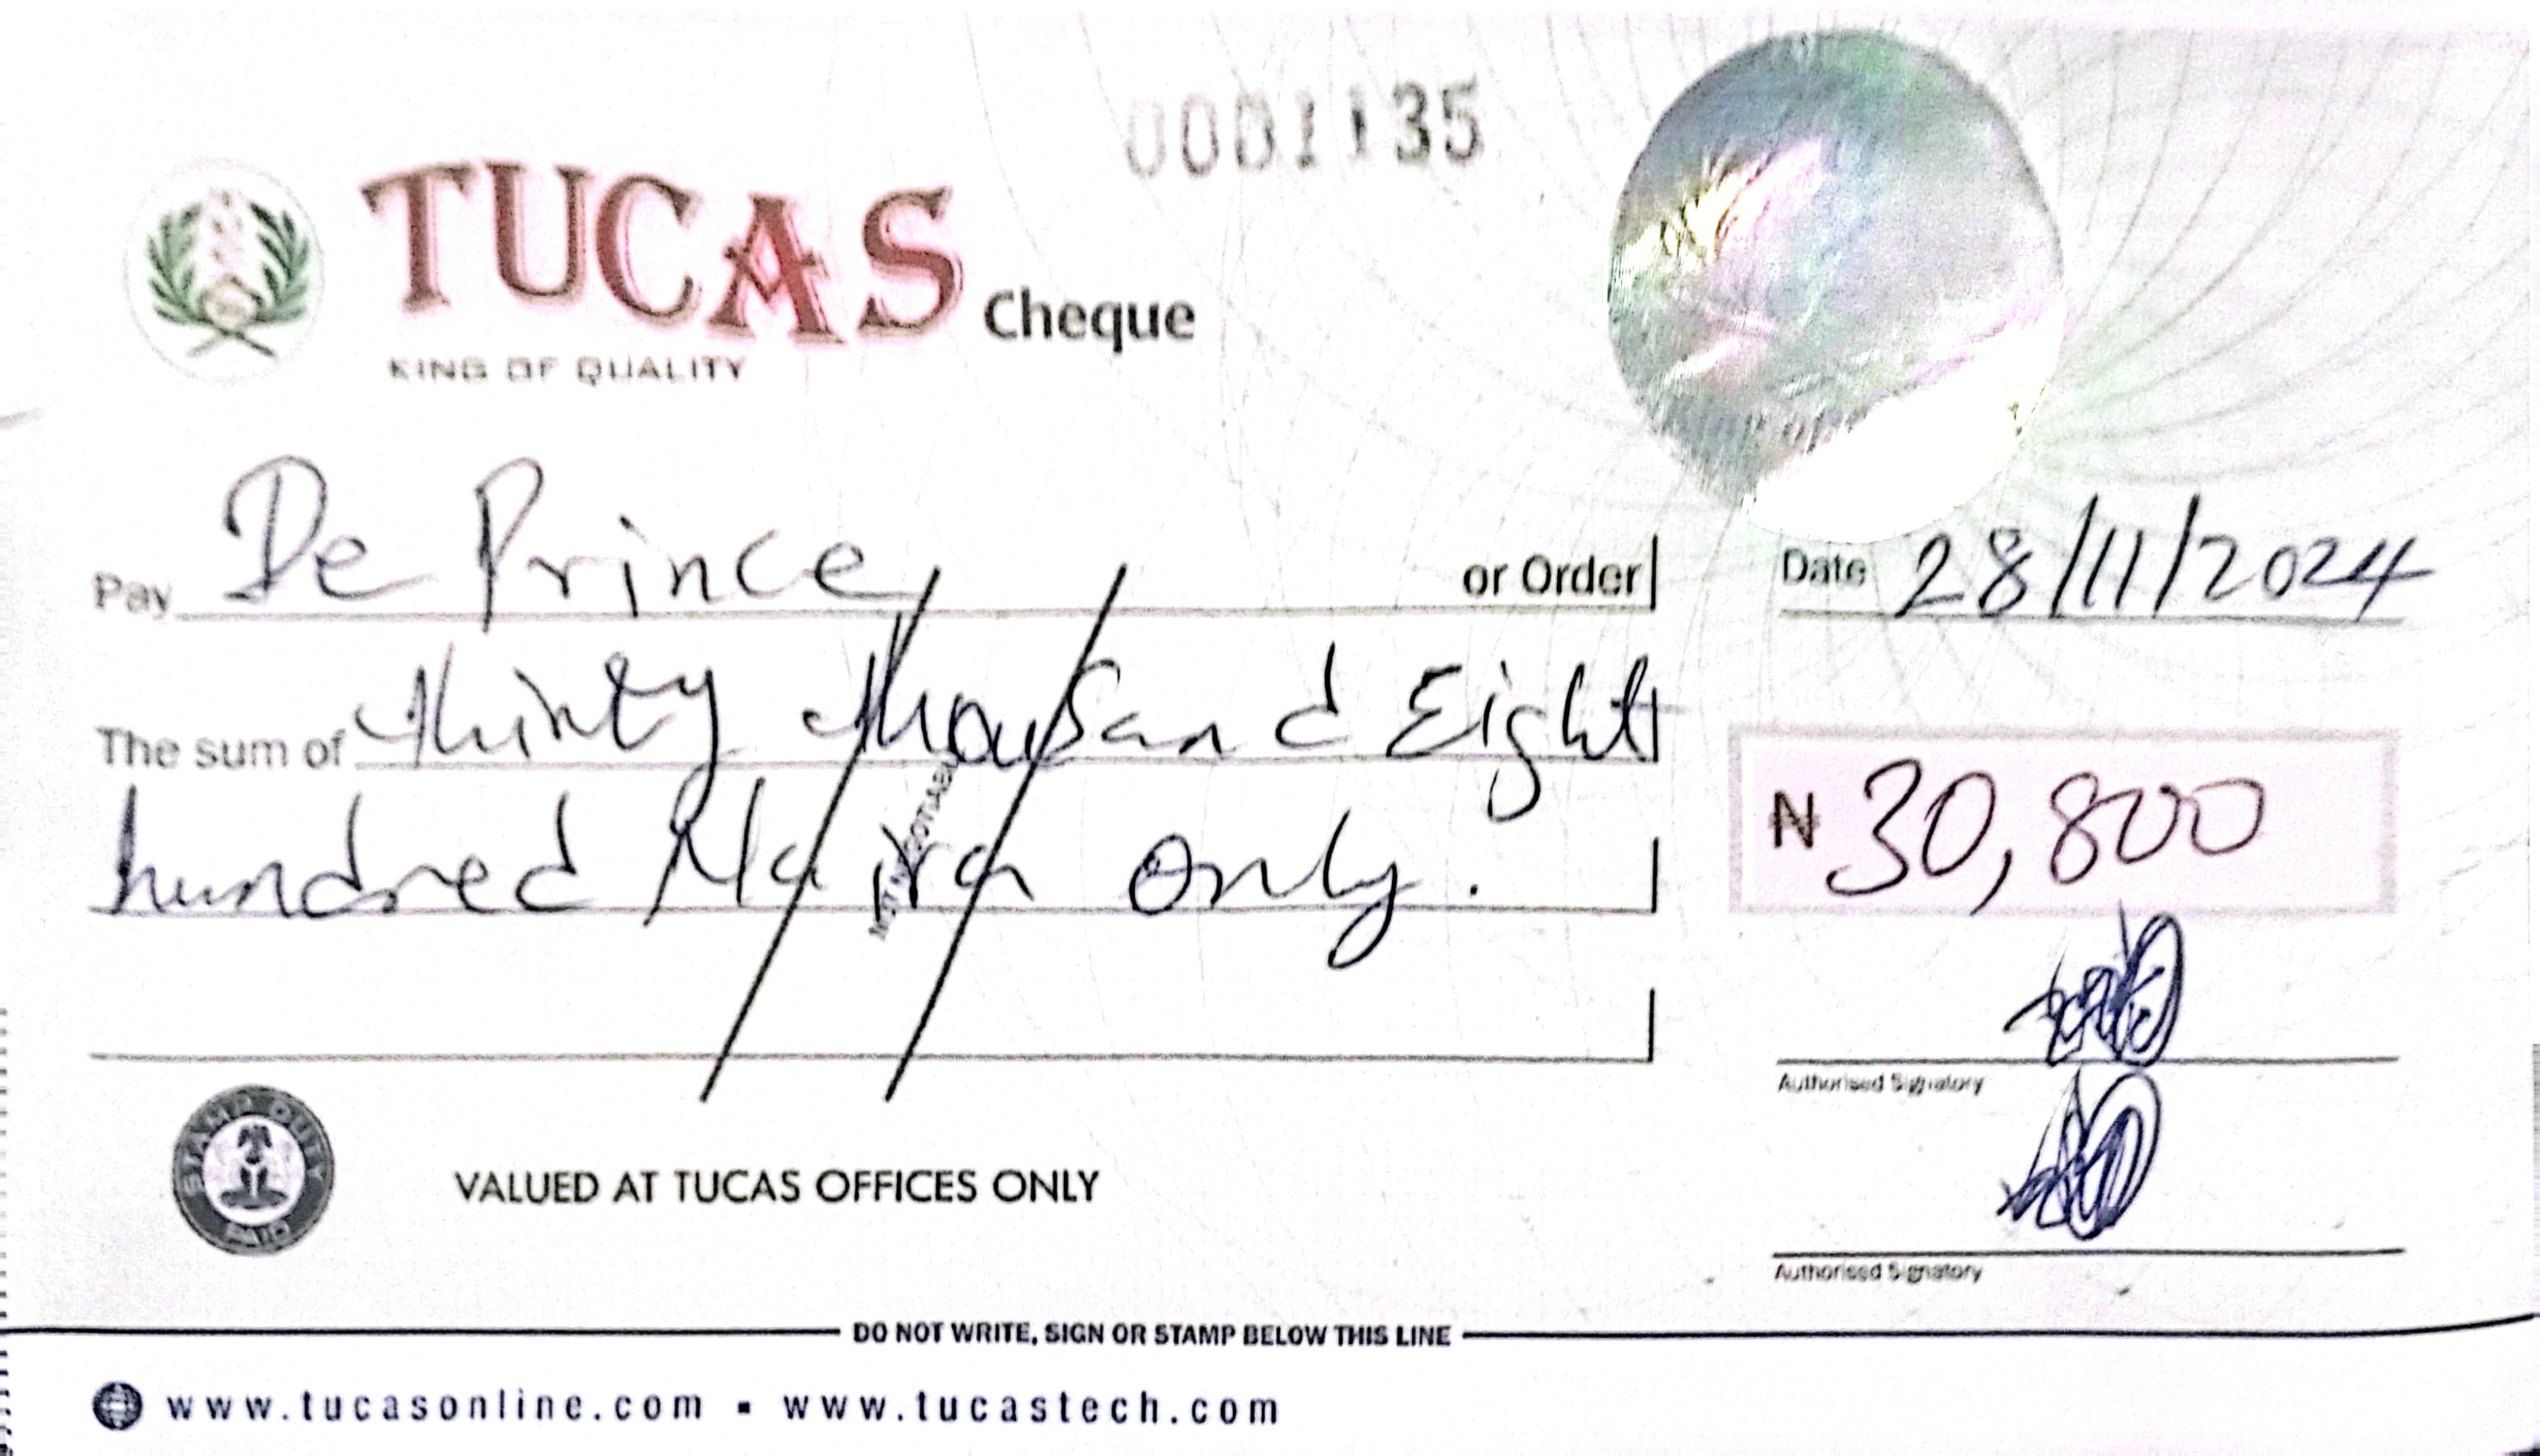 0001135
TUCAS Cheque
KING OF QUALITY
Pay De Prince or Order
Date 28/11/2024
The sum of Thirty thousand Eight
hundred Naira only.
₦ 30,800
NOT NEGOTIABLE
Authorised Signatory
STAMP DUTY
PAID
VALUED AT TUCAS OFFICES ONLY
Authorised Signatory
DO NOT WRITE, SIGN OR STAMP BELOW THIS LINE
www.tucasonline.com ▪ www.tucastech.com